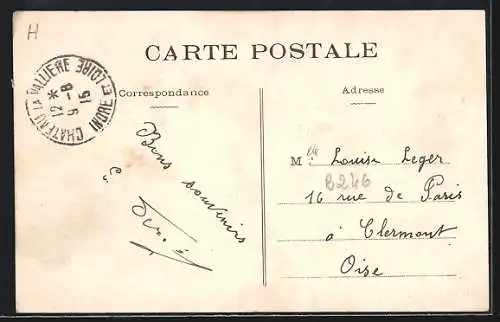 H
CARTE POSTALE
CHATEAU LA VALLIERE
INDRE ET LOIRE
12 *
9 - 8
15
Correspondance
Bons souvenirs
Adresse
Mlle Louise Leger
B246
16 rue de Paris
à Clermont
Oise